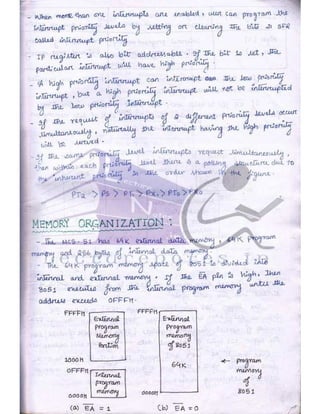 - When more than one interrupts are enabled, user can program the
interrupt priority levels by setting or clearing the bits in SFR
called interrupt priority
- IP register is also bit addressable. If the bit is set, the
particular interrupt will have high priority.
- A high priority interrupt can interrupt the low priority
interrupt, but a high priority interrupt will not be interrupted
by the low priority Interrupt.
- If the request of interrupts of 2 different priority levels occurs
simultaneously, the interrupt having the high priority
will be served.
- If the same priority level interrupts request simultaneously,
then within each priority level there is a polling structure due to
the inherent priority in the order shown in the figure.
> PS > > >
MEMORY ORGANIZATION :
- The MCS-51 has 64K external data memory, 64K program
memory and 256 bytes of internal data memory
- The 64K program memory space of 8051 is divided into
internal and external memory. If the EA pin is high, then
8051 executes from the internal program memory until the
address exceeds 0FFFH.
FFFFH
External
program
Memory
Portion
1000H
0FFFH
Internal
program
memory
0000H
(a) EA = 1
FFFFH
External
program
memory
of 8051
64K
0000H
(b) EA = 0
← program
memory
8051